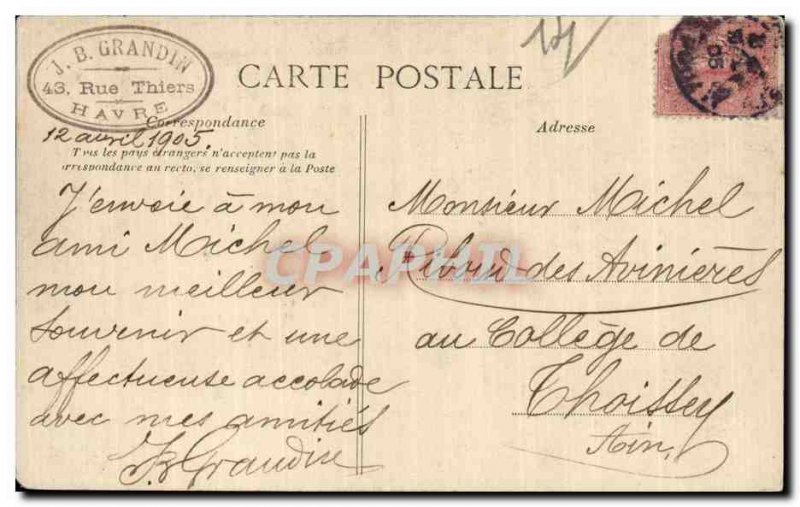 J. B. GRANDIN
43, Rue Thiers
HAVRE
CARTE POSTALE
Correspondance
12 avril 1905.
Tous les pays étrangers n'acceptent pas la
correspondance au recto, se renseigner à la Poste
J'envoie à mon
ami Michel
mon meilleur
souvenir et une
affectueuse accolade
avec mes amitiés
JB Grandin
Adresse
Monsieur Michel
Riboud des Avinières
au Collège de
Thoissey
Ain
CPAPHIL